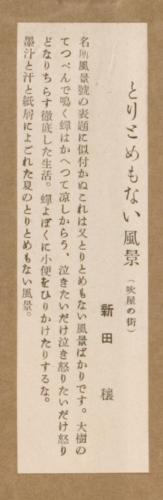 とりとめもない風景（吹屋の街）
新田　穣
名所風景號の表題に似付かぬこれは又とりとめもない風景ばかりです。大樹の
てつぺんで鳴く蟬はかへつて凉しからう、泣きたいだけ泣き怒りたいだけ怒り
どなりちらす徹底した生活。蟬よぼくに小便をひりかけたりするな。
墨汁と汗と紙屑によごれた夏のとりとめもない風景。